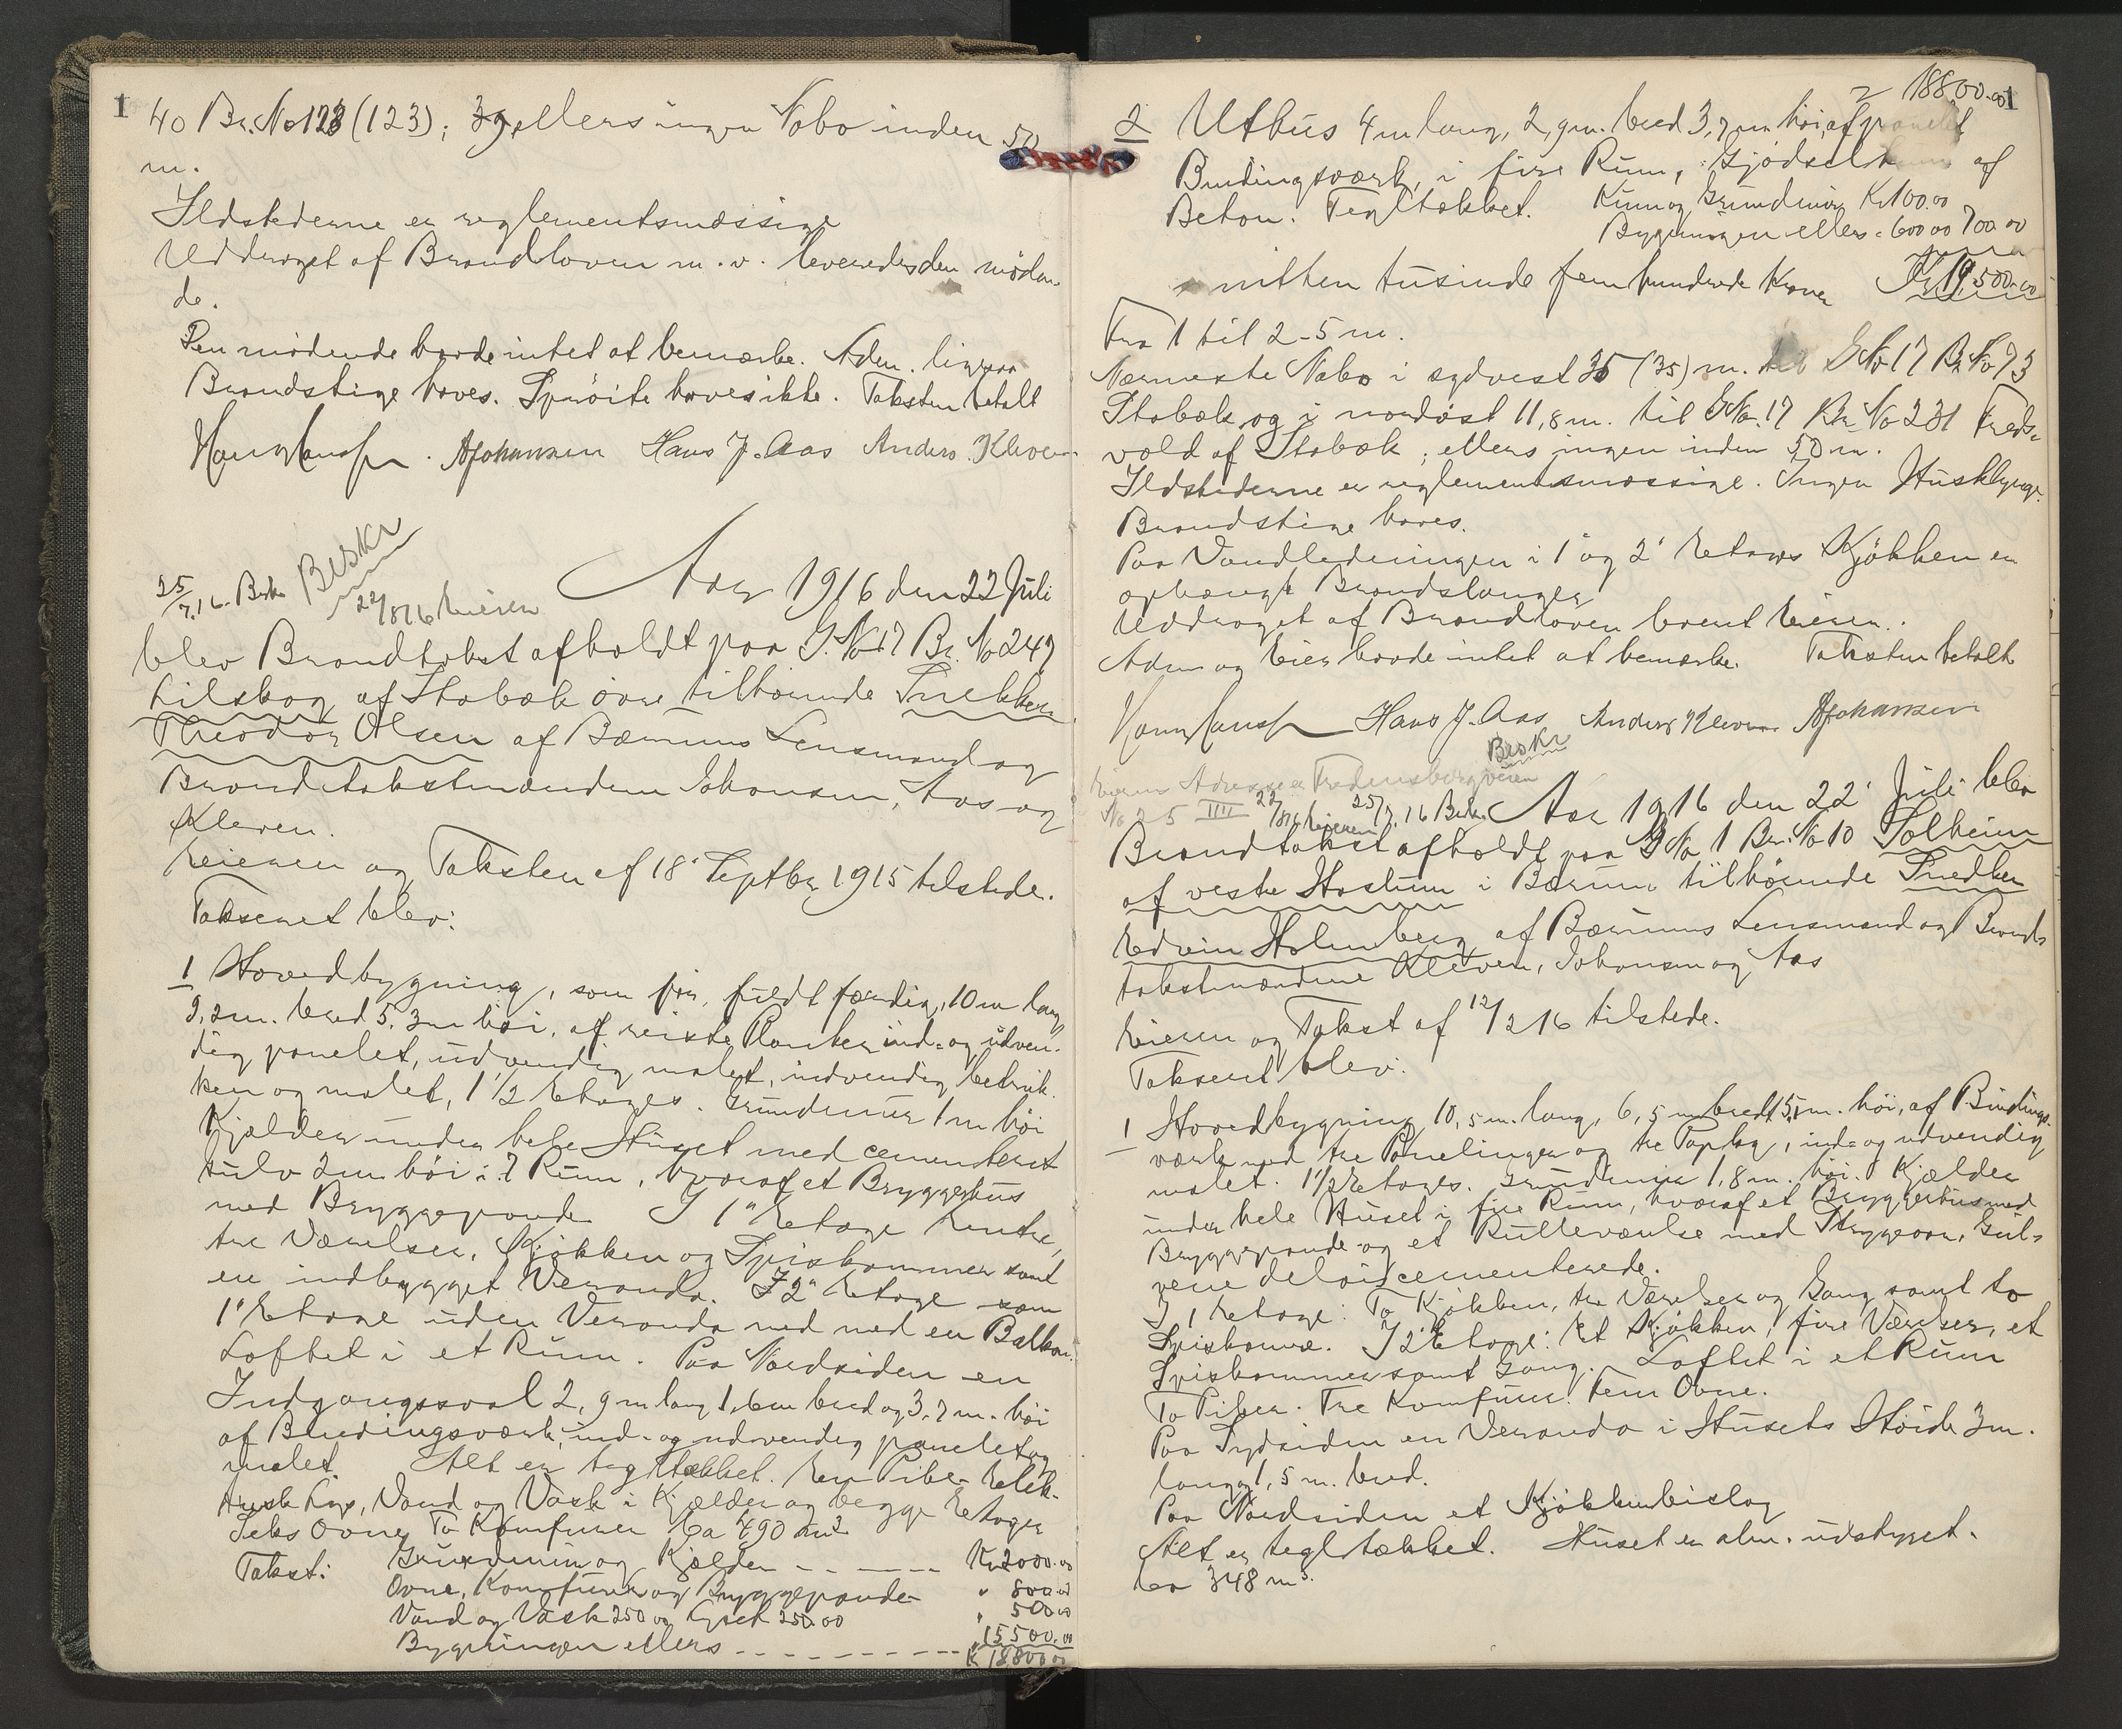 1
40 Br. No 123 (123); ellers ingen Nabo inden 50
m.
Ildstederne er reglementsmæssige
Uddraget af Brandloven m.v. leveredes den møden-
de.
Den mødende havde intet at bemærke. Adm. ligesaa
Brandstige haves. Sprøite haves ikke. Taksten betalt
AJohansen Hans J. Aas Anders Kleven
25/7.16. Beskr Beskr 22/8 16 Eieren Aar 1916 den 22 Juli
blev Brandtakst afholdt paa G. No 17 Br. No 247
Lilskog af Stabæk øvre tilhørende Snekker
Theodor Olsen af Bærums Lensmand og
Brandtakstmændene Johansen, Aas og
Kleven.
Eieren og Taksten af 18 Septbr 1915 tilstede.
Takseret blev:
1 Hovedbygning, som før, fuldt færdig, 10 m lang
9,2 m. bred 5,3 m høi, af reiste Planker ind- og udven-
dig panelet, udvendig malet, indvendig betruk-
ken og malet, 1 1/2 Etages. Grundmur 1 m høi
Kjælder under hele Huset med cementeret
Gulv 2 m høi i 7 Rum, hvoraf et Bryggerhus
med Bryggepande I 1" Etage Entre,
tre Værelser, Kjøkken og Spiskammer samt
en indbygget Veranda. I 2" Etage som
1" Etage uden Veranda med med en Balkon.
Loftet i et Rum. Paa Nordsiden en
Indgangssval 2,9 m lang 1,6 m bred og 3,7 m. høi
af Bindingsværk, ind- og udvendig panelet og
malet. Alt er teglstækket. En Pibe. Elek-
trisk Lys, Vand og Vask i Kjælder og begge Etager
Seks Ovne, To Komfurer Ca 490 m3
Takst: Grundmur og Kjælder - - - - Kr 2000.00
Ovne, Komfurer og Bryggepande - " 800.00
Vand og Vask 250 og Lyset 250.00 " 500.00
Bygningen ellers - - - - - - - - " 15500.00
Kr 18800.00
18800.00 1
2 Uthus 4 m lang, 2,9 m. bred 3,7 m. høi, af panelet
Bindingsværk, i fire Rum, Gjødselkum af
Beton. Tegltækket. Kum og Grundmur Kr 100.00
Bygningen ellers " 600.00 700.00
nitten tusinde fem hundrede Kroner Kr 19,500.00
Fra 1 til 2 - 5 m.
Nærmeste Nabo i sydvest 35 (35) m. til G No 17 Br No 73
Stabæk og i nordøst 11,8 m. til G No. 17 Br. No 231 Freds-
vold af Stabæk; ellers ingen inden 50 m.
Ildstederne er reglementsmæssige. Ingen Husklynge.
Brandstige haves.
Paa Vandledningen i 1" og 2' Etages Kjøkken er
ophængt Brandslanger
Uddraget af Brandloven levert Eieren.
Adm og Eier havde intet at bemærke. Taksten betalt
Hans J. Aas Anders Kleven AJohansen
Beskr
Eierens Adresse er Fredensborgveien
No 25 IIII 22/8 16 Eieren 25/7.16 Beskr. Aar 1916 den 22' Juli blev
Brandtakst afholdt paa G No 1 Br. No 10 Solheim
af vestre Haslum i Bærum tilhørende Snedker
Edvin Holmberg af Bærums Lensmand og Brand-
takstmændene Kleven, Johansen og Aas
Eieren og Takst af 12/2 16 tilstede.
Takseret blev:
1 Hovedbygning 10,5 m. lang, 6,5 m bred 5,1 m. høi, af Bindings-
værk med tre Panelinger og tre Paplag, ind- og udvendig
malet. 1 1/2 Etages. Grundmur 1,8 m. høi. Kjælder
under hele Huset i fire Rum, hvoraf et Bryggerhus med
Bryggepande og et Rulleværelse med Strygeovn, Gul-
vene delvis cementerede.
I 1 Etage: To Kjøkken, tre Værelser og Gang samt to
Spiskamre. I 2' Etage: Et Kjøkken, fire Værelser, et
Spiskammer samt Gang. Loftet i et Rum
To Piber. Tre Komfurer. Fem Ovne.
Paa Sydsiden en Veranda i Husets Høide 3 m.
lang 1,5 m. bred.
Paa Nordsiden et Kjøkkenbislag
Alt er teglstækket. Huset er alm. udstyret.
Ca 348 m3.